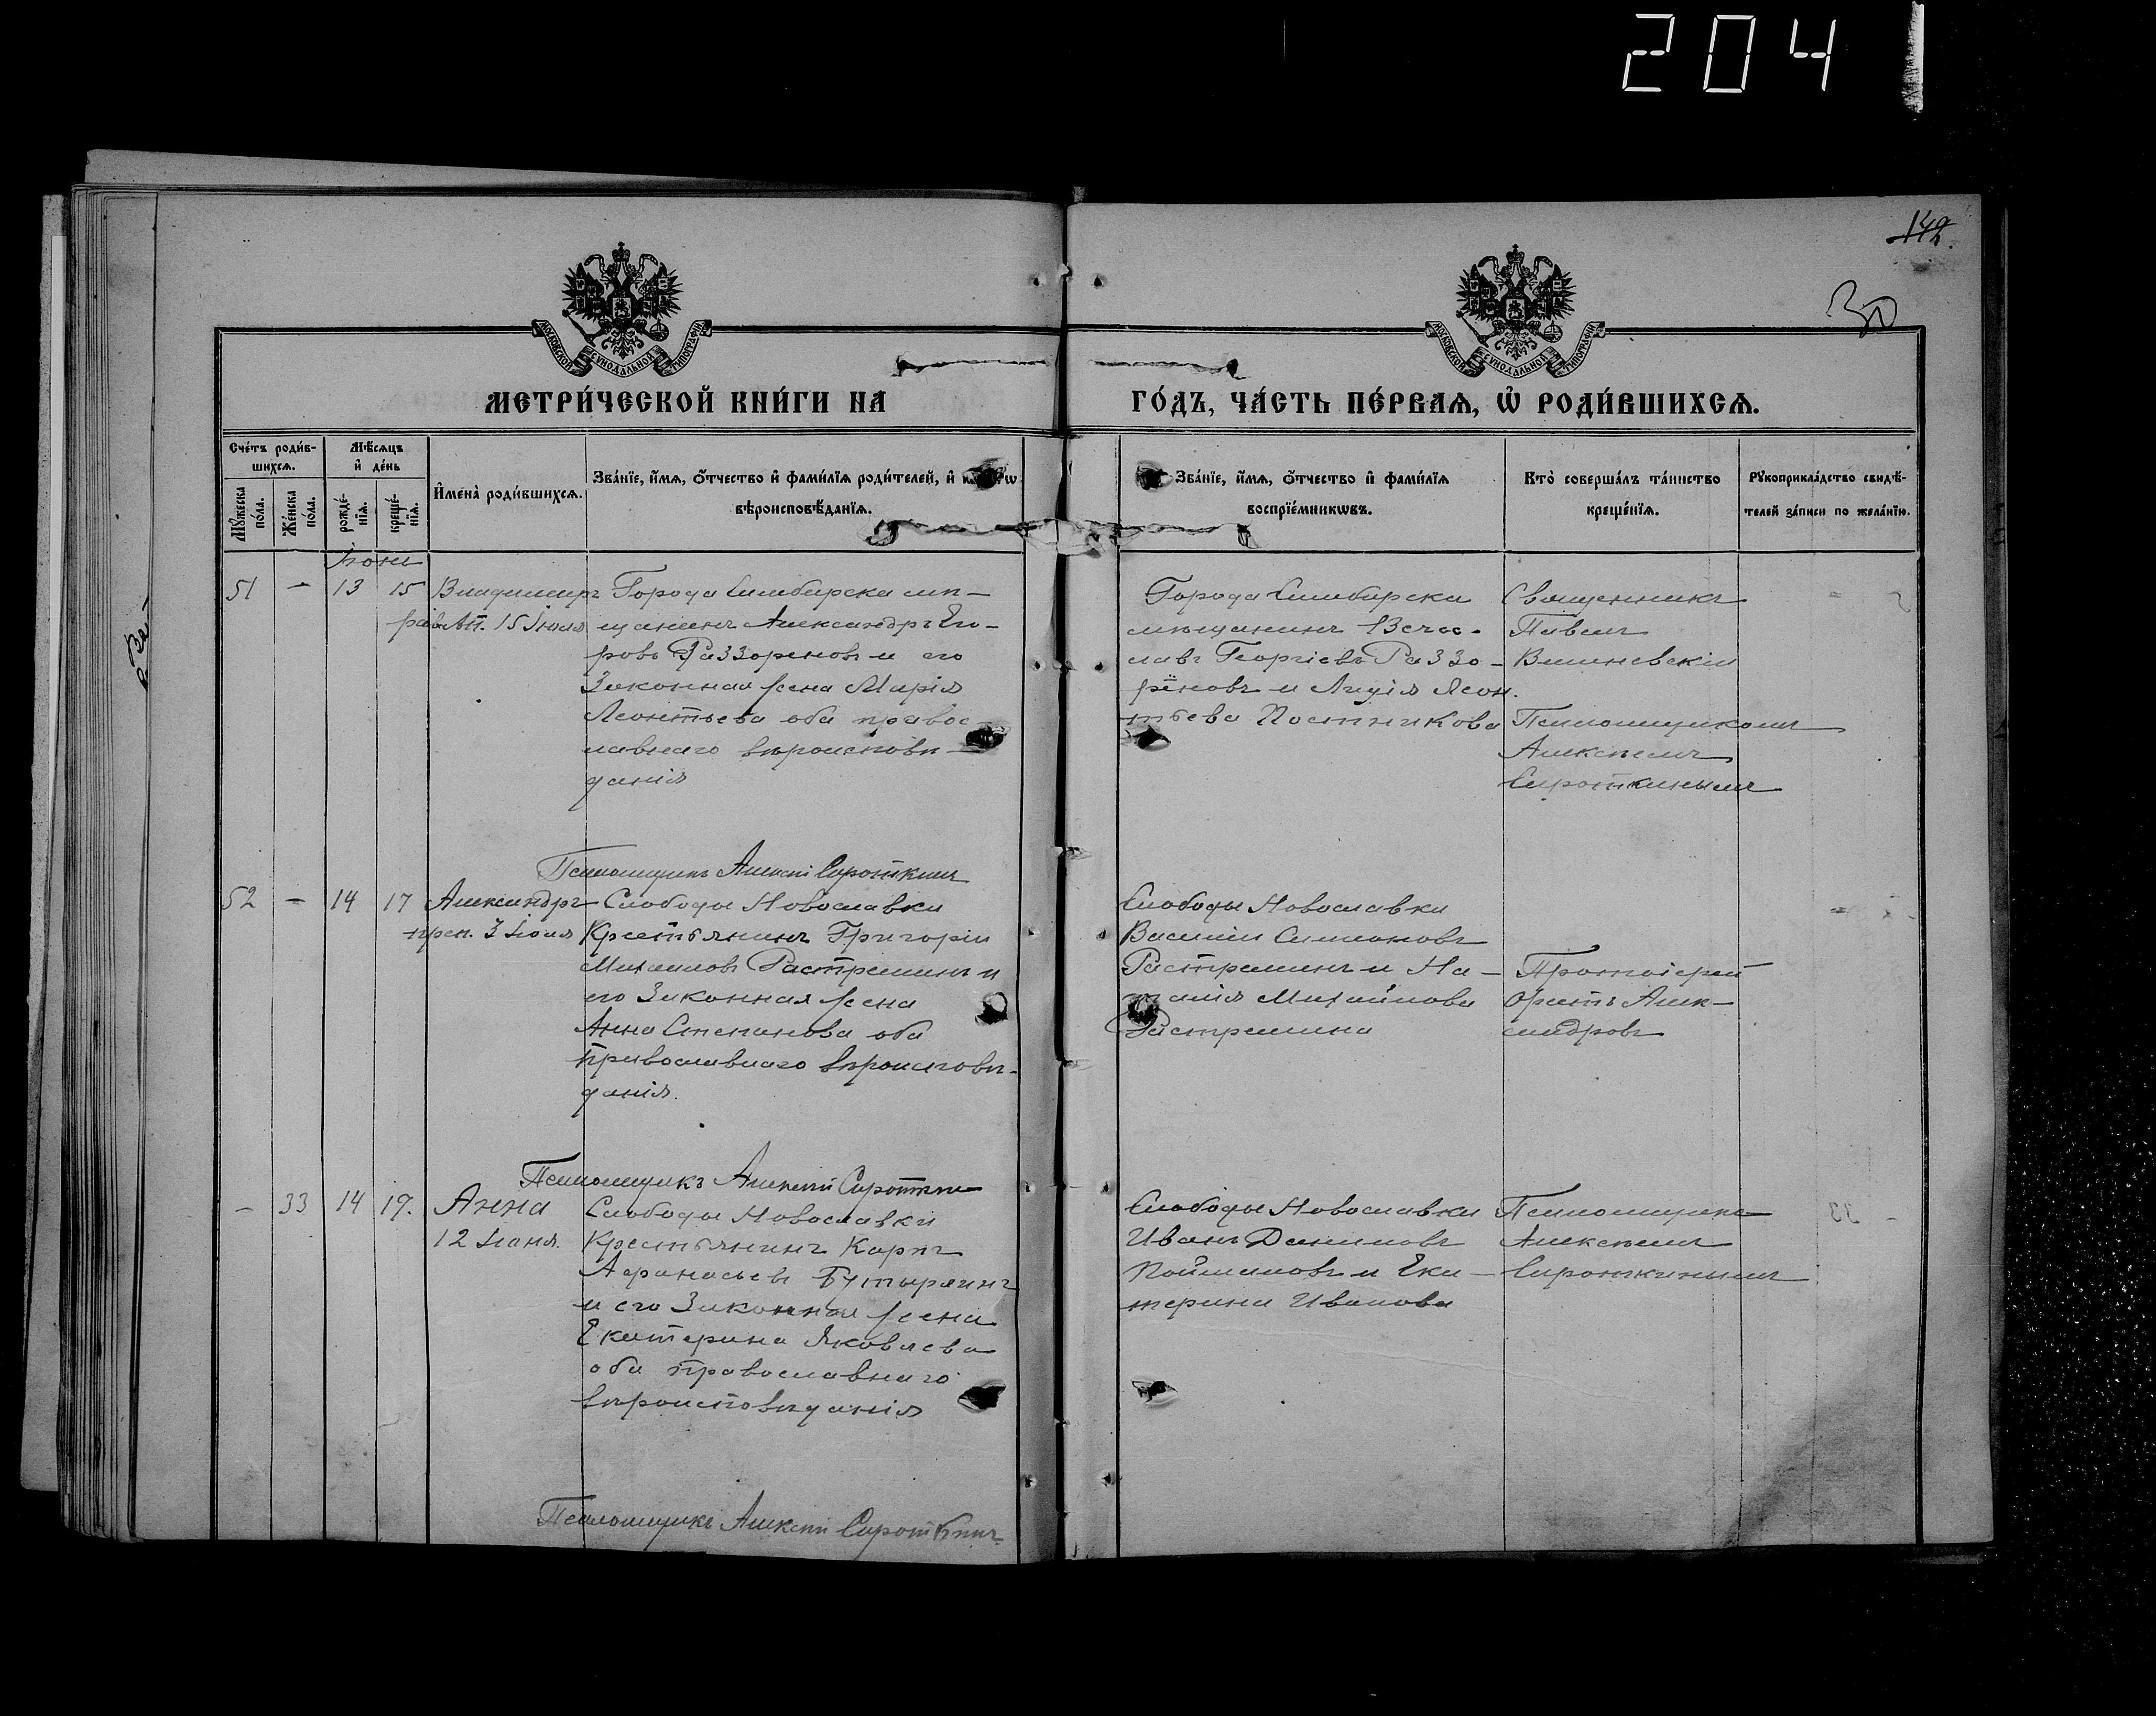 204
142.
30
МОСКОВСКОЙ СѴНОДАЛЬНОЙ ТИПОГРАФІИ
МОСКОВСКОЙ СѴНОДАЛЬНОЙ ТИПОГРАФІИ
МЕТРИ́ЧЕСКОЙ КНИ́ГИ НА
ГО́ДЪ, ЧА́СТЬ ПЕ́РВАѦ, Ѡ҆ РОДИ́ВШИХСѦ.
Сче́тъ роди́в-
шихсѧ.
Мѣ́сѧцъ
и҆ де́нь
Мꙋ́жеска по́ла.
Же́нска по́ла.
рожде́-
нїѧ.
креще́-
нїѧ.
И҆мена̀ роди́вшихсѧ.
Зва́нїе, и҆́мѧ, ѻ҆́тчество и҆ фами́лїѧ роди́телей, и҆
вѣроисповѣ́данїѧ.
Зва́нїе, и҆́мѧ, ѻ҆́тчество и҆ фами́лїѧ
воспрїе́мникѡвъ.
Кто̀ соверша́лъ та́инство
креще́нїѧ.
Рꙋкоприкла́дство свидѣ́-
телей за́писи по жела́нїю.
51 — 13 15 Владимиръ
рав. Ап. 15 Іюля
Города Симбирска мѣ-
щанинъ Александръ Его-
ровъ Раззореновъ и его
Законная жена Марія
Леонтьева оба правос-
лавнаго вѣроисповѣ-
данія
Города Симбирска
мѣщанинъ Вечес-
лавъ Георгіевъ Раззо-
рёновъ и Лидія Леон-
тьева Постникова
Священникъ
Павелъ
Вишневскій
Псаломщикомъ
Алексѣемъ
Сироткинымъ
Псаломщикъ Алексѣй Сироткинъ
52 — 14 17 Александръ
преп. 3 Іюля
Слободы Новославки
Крестьянинъ Григорій
Михаиловъ Растрепинъ и
его Законная жена
Анна Степанова оба
Православнаго вѣроисповѣ-
данія.
Слободы Новославки
Василій Симоновъ
и На-
талія Михайлова
Протоіерей
Алек-
сандровъ
Псаломщикъ Алексѣй Сироткинъ
— 33 14 19. Анна
12 Іюня.
Слободы Новославки
Крестьянинъ Карпъ
Афанасьевъ Бутырлинъ
и его Законная жена
Екатерина Яковлева
оба православнаго
вѣроисповѣданія
Слободы Новославки
Иванъ Даниловъ
и Ека-
терина Иванова
Псаломщикъ
Алексѣемъ
Сироткинымъ
Псаломщикъ Алексѣй Сироткинъ